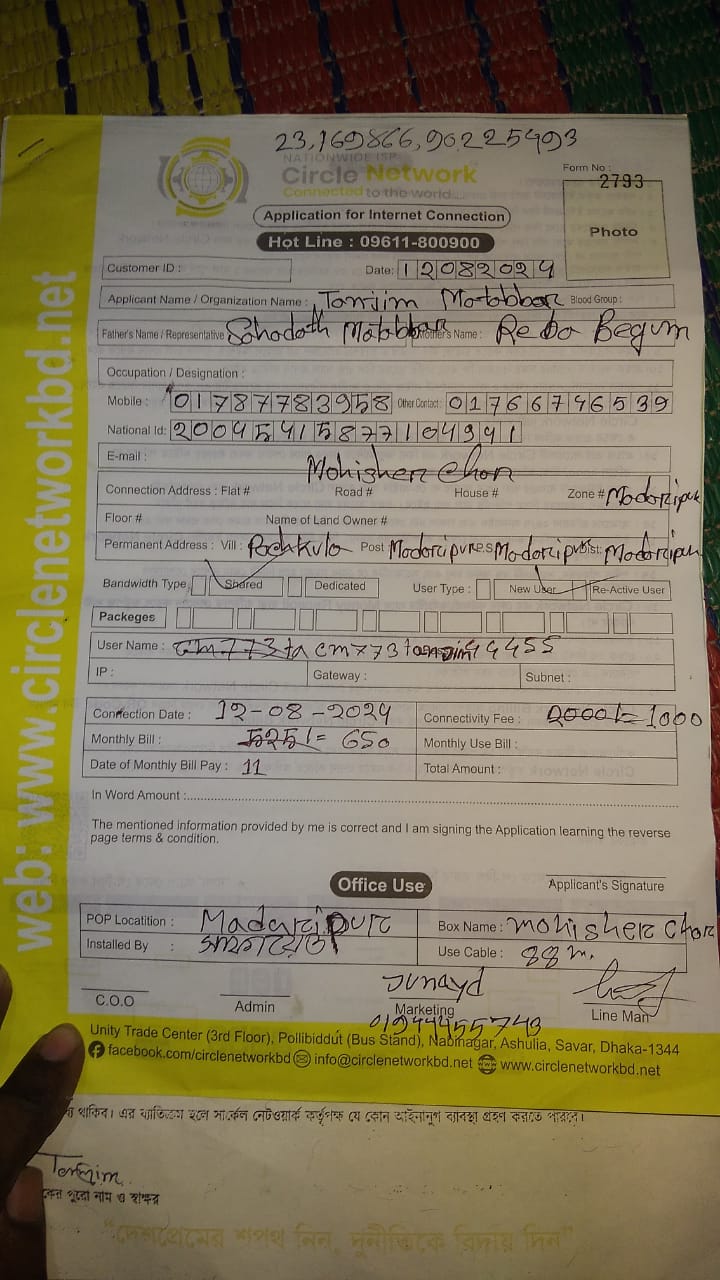 23,169866,90.225493
NATIONWIDE ISP
Circle Network
Connected to the world...
Form No :
2793
Photo
Application for Internet Connection
Hot Line : 09611-800900
Customer ID : Date: 12082024
Applicant Name / Organization Name : Tanjim Matobbor Blood Group :
Father's Name / Representative Sohodath Matobbor Mother's Name : Reba Begum
Occupation / Designation :
Mobile : 01787783958 Other Contact : 01766746539
National Id: 20045415877104941
E-mail :
Mohisher Chor
Connection Address : Flat # Road # House # Zone # Madaripur
Floor # Name of Land Owner #
Permanent Address : Vill : Pachkula Post Madaripur P.S Madaripur Dist: Madaripur
Bandwidth Type Shared Dedicated User Type : New User Re-Active User
Packeges
User Name : 4455
IP : Gateway : Subnet :
Connection Date : 12-08-2024 Connectivity Fee : 2000/= 1000
Monthly Bill : 525/= 650 Monthly Use Bill :
Date of Monthly Bill Pay : 11 Total Amount :
In Word Amount :
The mentioned information provided by me is correct and I am signing the Application learning the reverse
page terms & condition.
Office Use
Applicant's Signature
POP Locatition : Madaripur Box Name : mohisher Chor
Installed By : Use Cable : 88 m.
Junayd
C.O.O Admin Marketing Line Man
01944455743
Unity Trade Center (3rd Floor), Pollibiddut (Bus Stand), Nabinagar, Ashulia, Savar, Dhaka-1344
facebook.com/circlenetworkbd info@circlenetworkbd.net www.circlenetworkbd.net
web: www.circlenetworkbd.net
থাকিব। এর ব্যতিক্রম হলে সার্কেল নেটওয়ার্ক কর্তৃপক্ষ যে কোন আইনানুগ ব্যবস্থা গ্রহণ করতে পারবে।
Tanjim
পুরো নাম ও স্বাক্ষর
"দেশপ্রেমের শপথ নিন, দুর্নীতিকে বিদায় দিন"